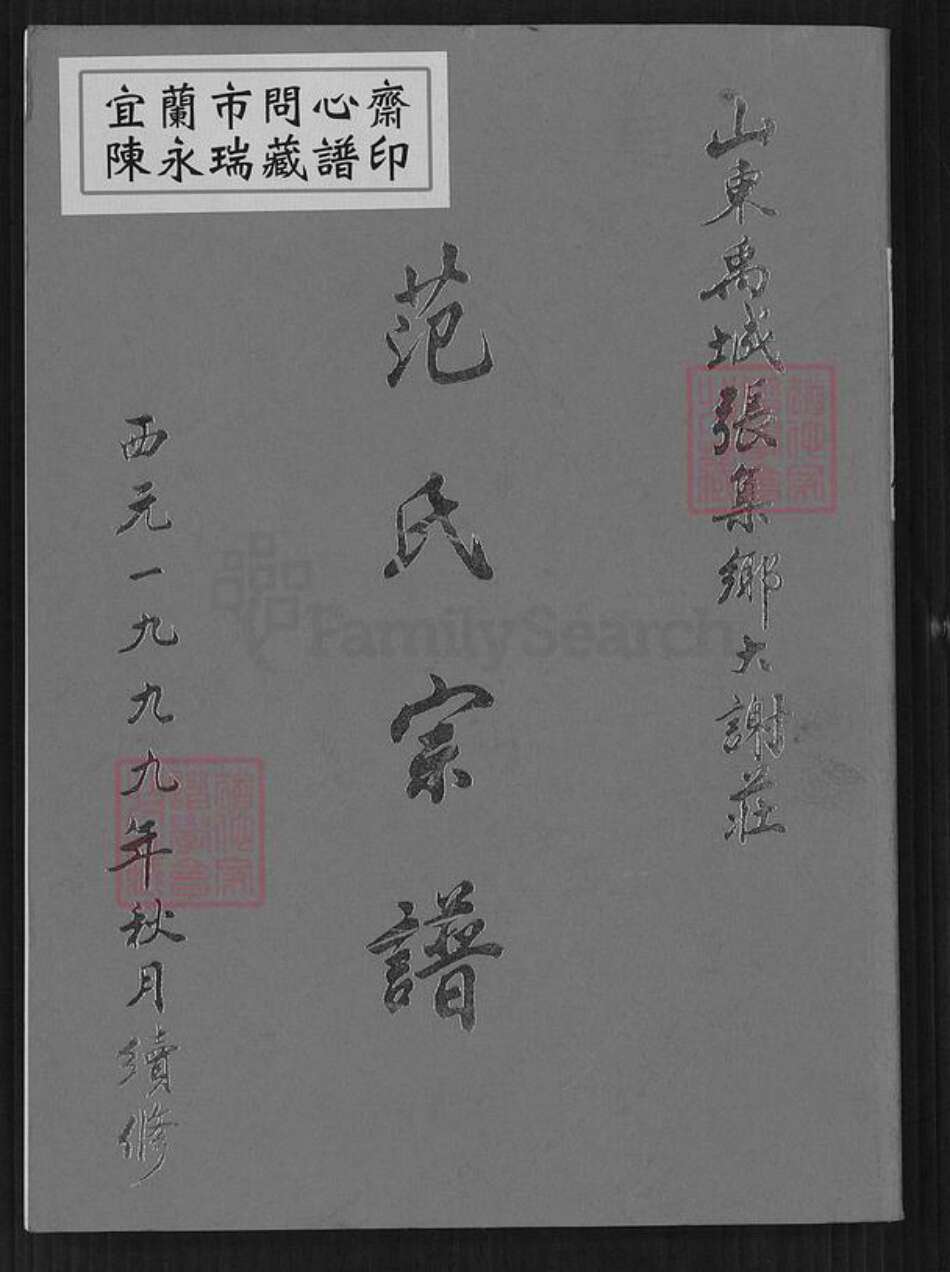 宜蘭市問心齋
陳永瑞藏譜印
山東禹城張集鄉大謝莊
范氏宗譜
西元一九九九年秋月續修
FamilySearch